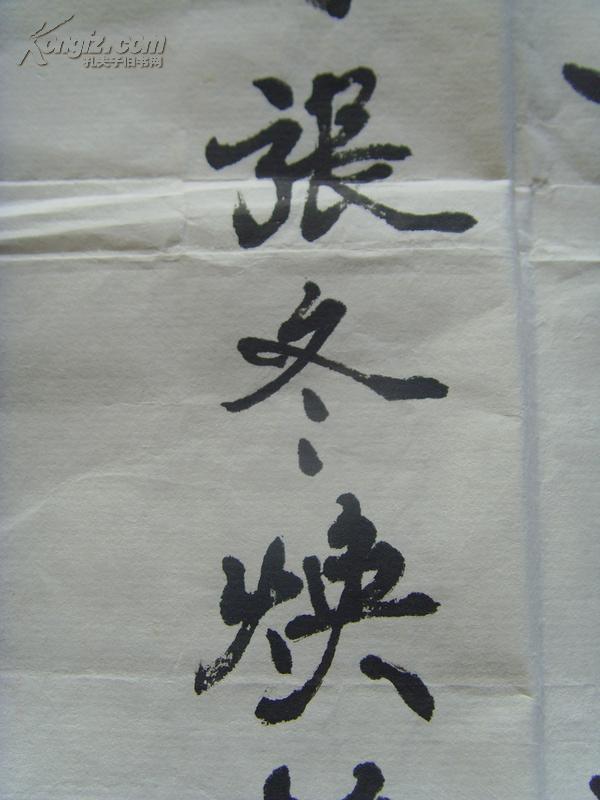 Kongfz.com
孔夫子旧书网
張冬煥